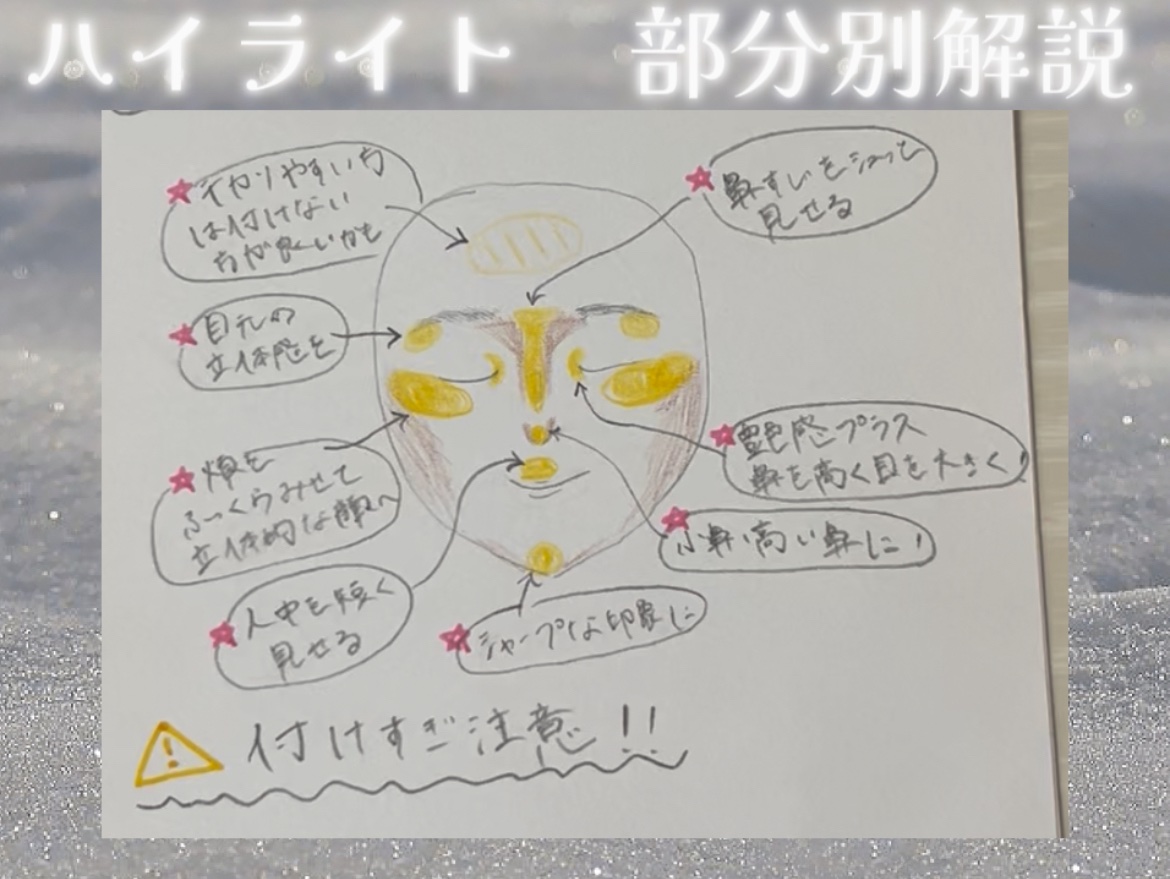 ハイライト 部分別解説
テカりやすい方
は付けない
方が良いかも
鼻すじをシュッと
見せる
目元の
立体感を
艶感プラス
鼻を高く目を大きく!
頬を
ふっくらみせて
立体的な顔へ
小鼻、高い鼻に!
人中を短く
見せる
シャープな印象に
付けすぎ注意!!